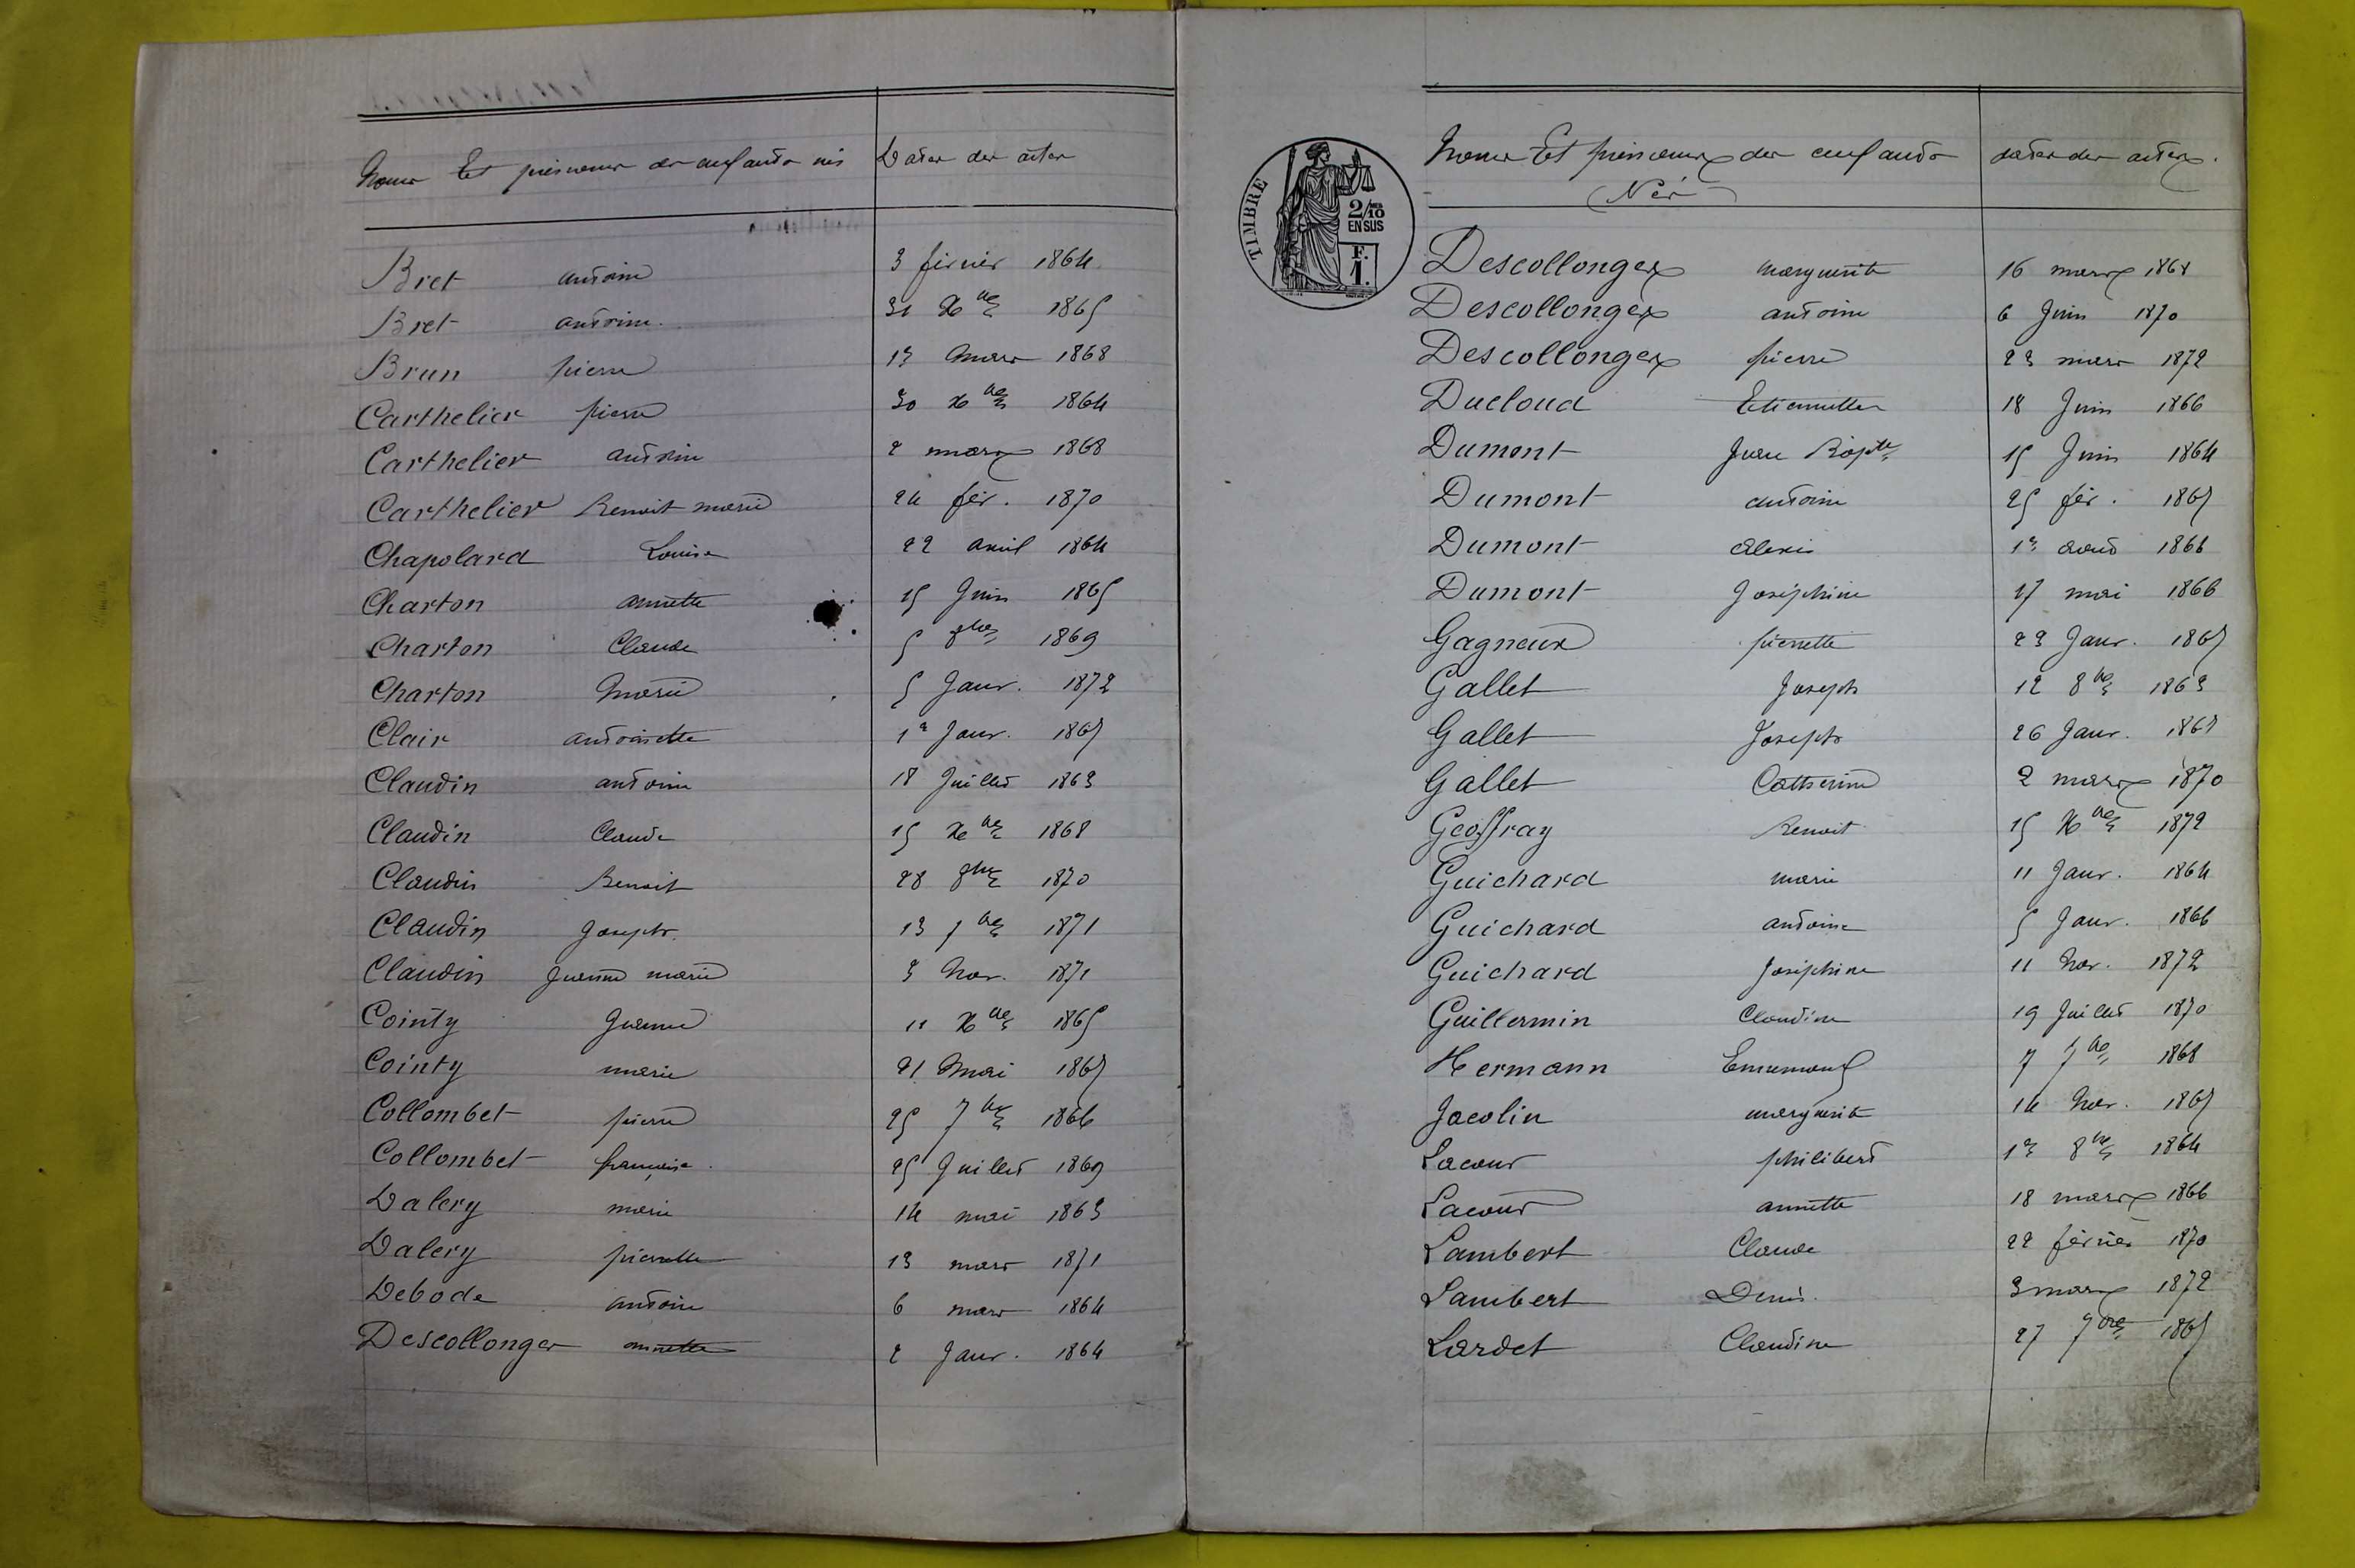 Noms Et prénoms des enfants nés Dates des actes
Bret antoine 3 février 1864
Bret antoine. 31 Xbre 1865
Brun pierre 13 Mars 1868
Carthelier pierre 30 Xbre 1864
Carthelier antoine 2 mars 1868
Carthelier Benoit marie 24 fév. 1870
Chapolard Louise 22 avril 1864
Charton annette 15 Juin 1865
Charton Claude 5 8bre 1869
Charton Marie 5 Janv. 1872
Clair antoinette 1er Janv. 1867
Claudin antoine 18 Juillet 1863
Claudin Claude 15 Xbre 1868
Claudin Benoit 28 8bre 1870
Claudin Joseph 13 7bre 1871
Claudin Jeanne marie 3 Nov. 1871
Cointy Jeanne 11 Xbre 1865
Cointy marie 21 Mai 1867
Collombet pierre 25 7bre 1866
Collombet françoise 25 Juillet 1869
Dalery marie 14 mai 1863
Dalery pierrette 13 mars 1871
Debode antoine 6 mars 1864
Descollonges annette 2 Janv. 1864
TIMBRE
2/10
EN SUS
F.
1.
Noms Et prénoms des enfants dates des actes.
Nés
Descollonges marguerite 16 mars 1868
Descollonges antoine 6 Juin 1870
Descollonges pierre 23 mars 1872
Ducloud Etiennette 18 Juin 1866
Dumont Jean Bapte 15 Juin 1864
Dumont antoine 25 fév. 1867
Dumont alexis 1er aout 1866
Dumont Joséphine 17 mai 1866
Gagneux pierrette 23 Janv. 1867
Gallet Joseph 12 8bre 1863
Gallet Joseph 26 Janv. 1868
Gallet Catherine 2 mars 1870
Geoffray Benoit 15 Xbre 1872
Guichard marie 11 Janv. 1864
Guichard antoine 5 Janv. 1866
Guichard Joséphine 11 Nov. 1872
Guillermin Claudine 19 Juillet 1870
Hermann Ennemond 7 7bre 1868
Jacolin marguerite 14 Nov. 1867
Lacour philibert 13 8bre 1864
Lacour annette 18 mars 1866
Lambert Claude 22 février 1870
Lambert Denis. 3 mars 1872
Lardet Claudine 27 7bre 1867